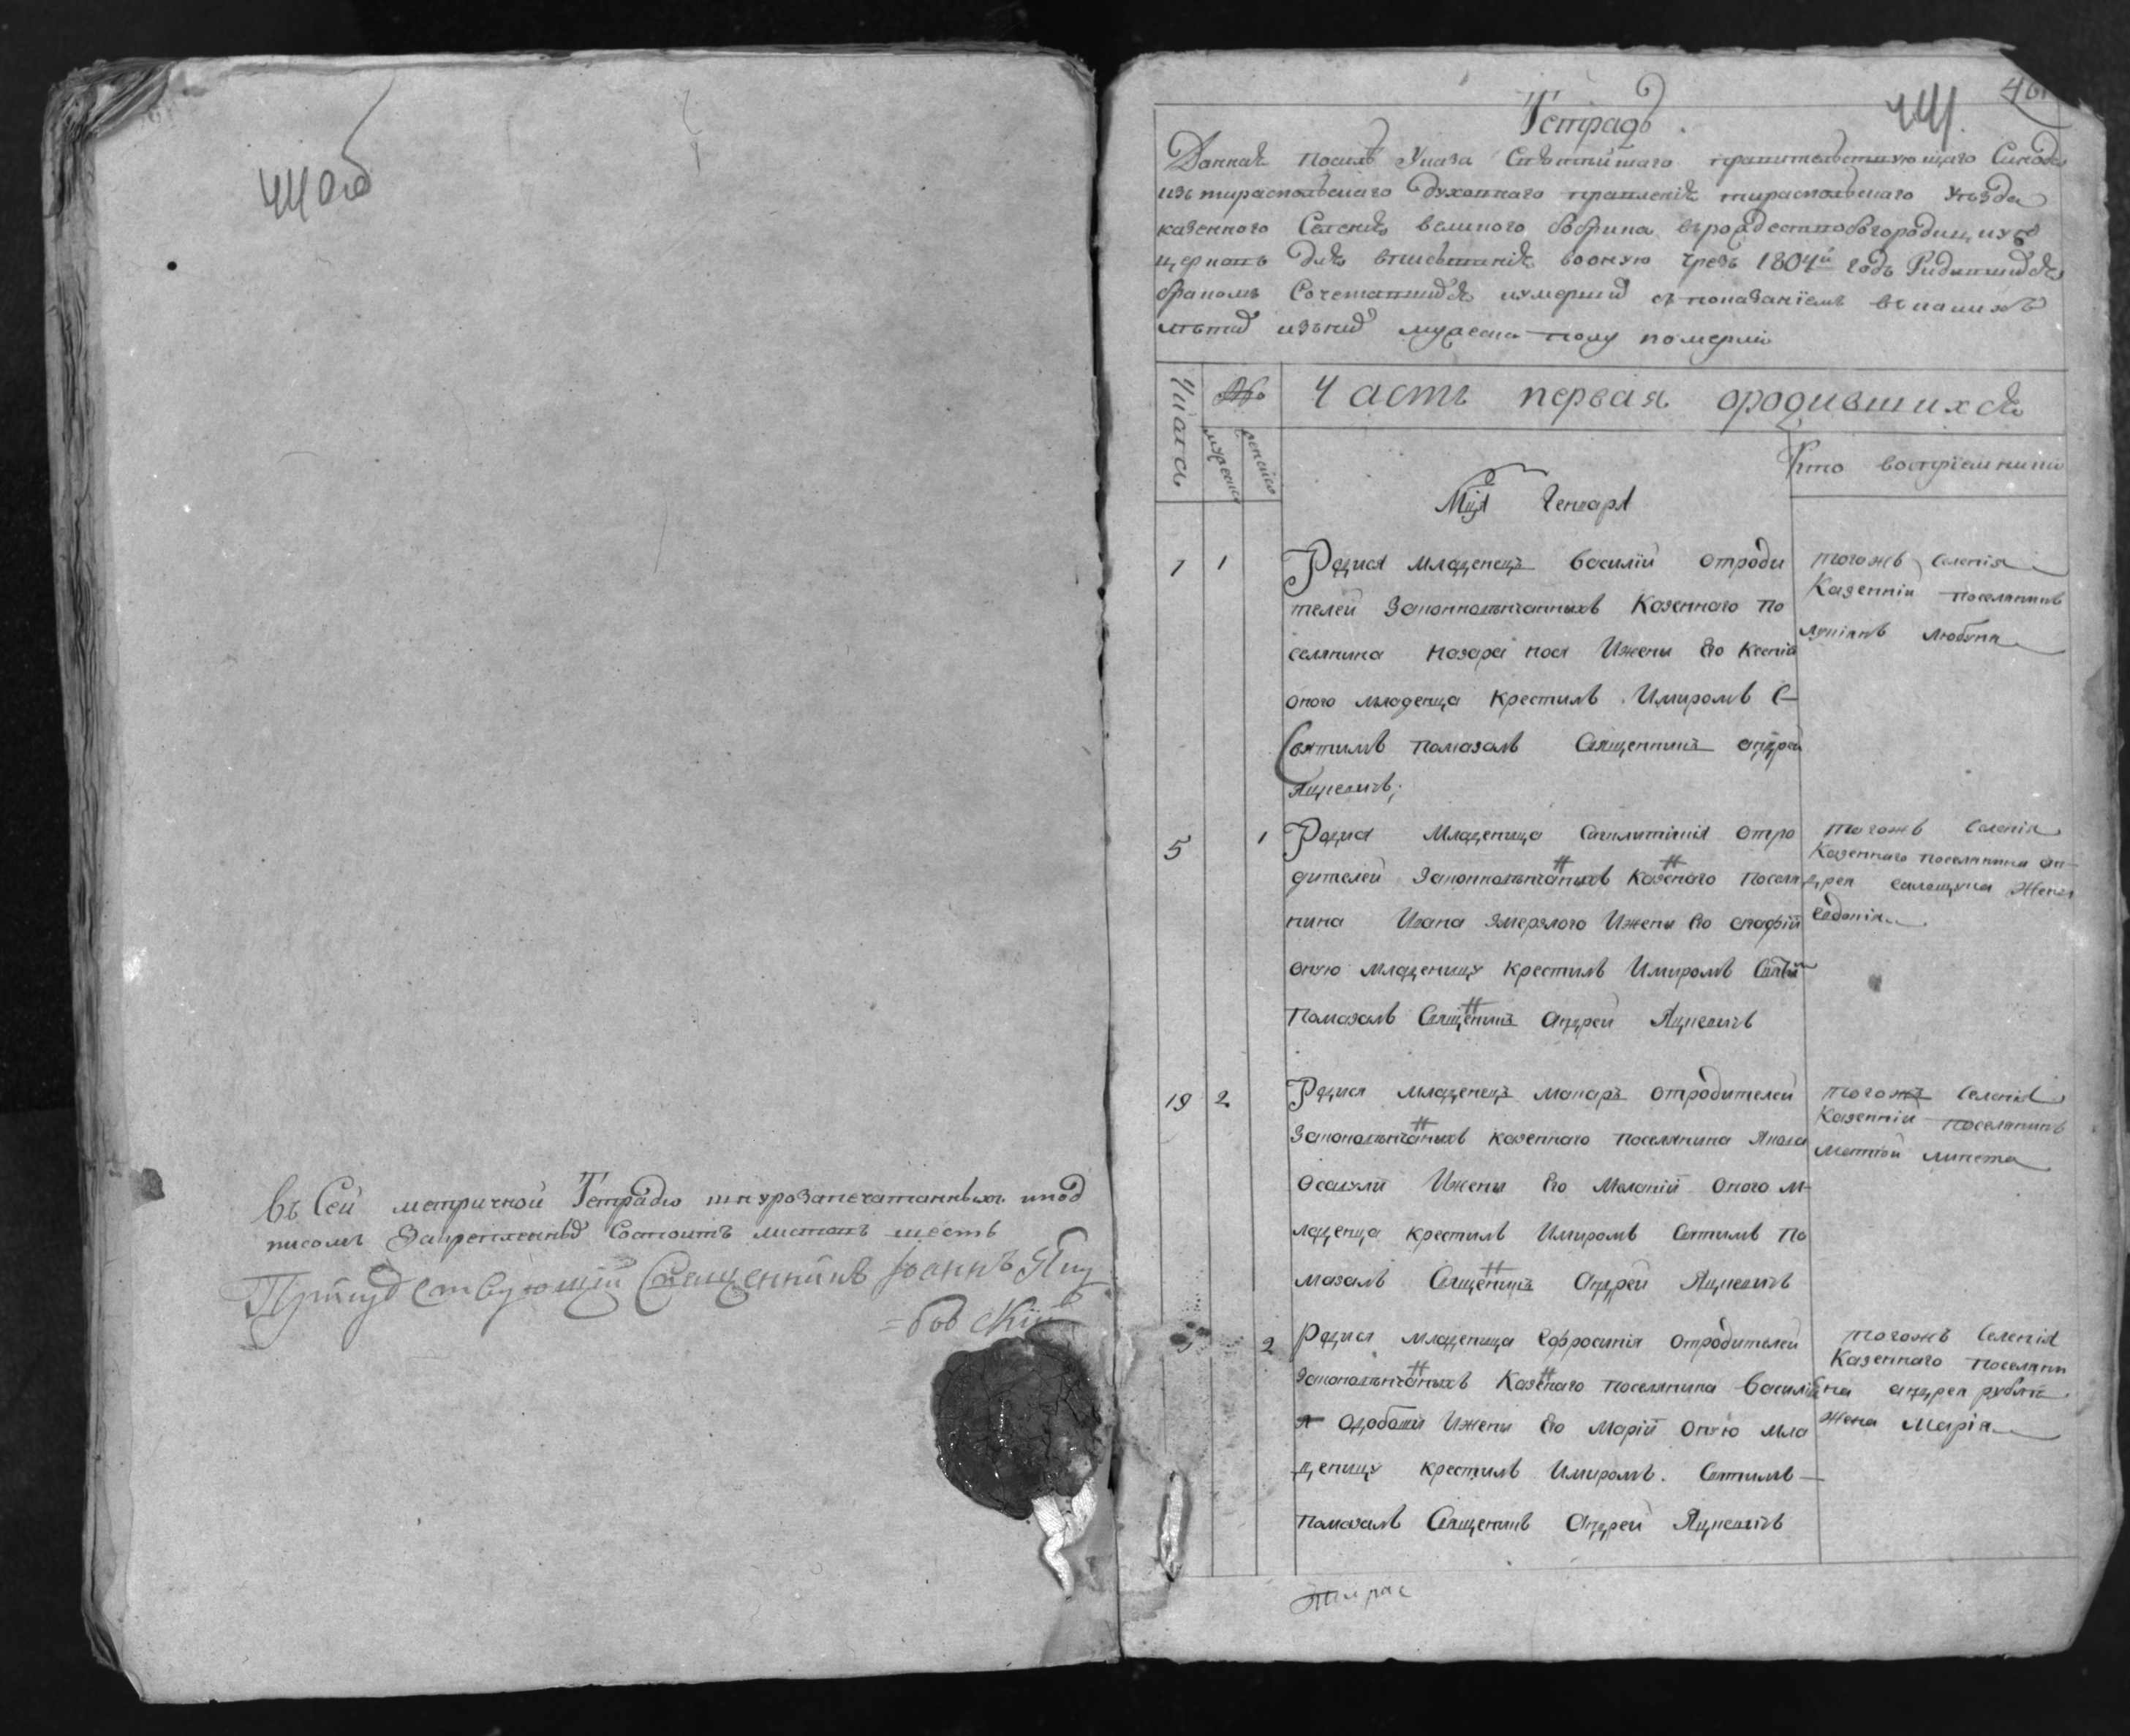 въ Сей метричной Тетради шнурозапечатанныхъ и под
писомъ Закрепленныхъ Состоитъ листовъ шесть
Присудствующій Священникъ Іоаннъ
Тетрадь
Данная посилѣ Указа Святѣйшаго правительствующаго Синода
изъ тираспольскаго духовнаго правленія тираспольскаго уѣзда
казенного Селенія великого бобрика въ рождествобогородичную
церковь для вписыванія вооную чрезъ 1804й годъ Родившихся
бракомъ Сочетавшихся и умершихъ съ показаніемъ въ какихъ
лѣтахъ изъ них мужеска полу померли
Числа
Часть первая ородившихся
мужеска
женска
Кто восприемники
Мця Генваря
1 1 Родися младенецъ Василій отроди
телей Законновѣнчанныхъ Казенного по
селянина Назарі Ижены Его Ксеніи
оного младенца крестилъ Имиромъ С
Святимъ помазалъ Священникъ андрей
Яцкевичъ;
тогожъ Селенія
Казенній поселянинъ
5 1 Родися Младеница отро
дителей Законновѣнчаныхъ Казенаго поселя
нина Ивана Змерзлого Ижены Его агафіи
оную младеницу крестилъ Имиромъ Святи
помазалъ Священикъ Андрей Яцкевичъ
тогожъ Селенія
Казенного поселянина ан
дрея Жена
Евдокія
19 2 Родися младенецъ макаръ отродителей
Законовѣнчаныхъ казенного поселянина Якова
Осаули Ижены Его Меланіи оного м
ладенца крестилъ Имиромъ Святимъ по
мазалъ Священикъ Андрей Яцкевичъ
тогожъ Селенія
Казенній поселянинъ
матвѣй
2 Родися младеница Ефросинія отродителей
Законовѣнчаныхъ Казенаго поселянина Василі
я Ижены Его Маріи оную мла
деницу крестилъ Имиромъ. Святимъ
помазалъ Священикъ Андрей Яцкевичъ
тогожъ Селенія
Казенного поселяни
на андрея
жена Марія
Тирас